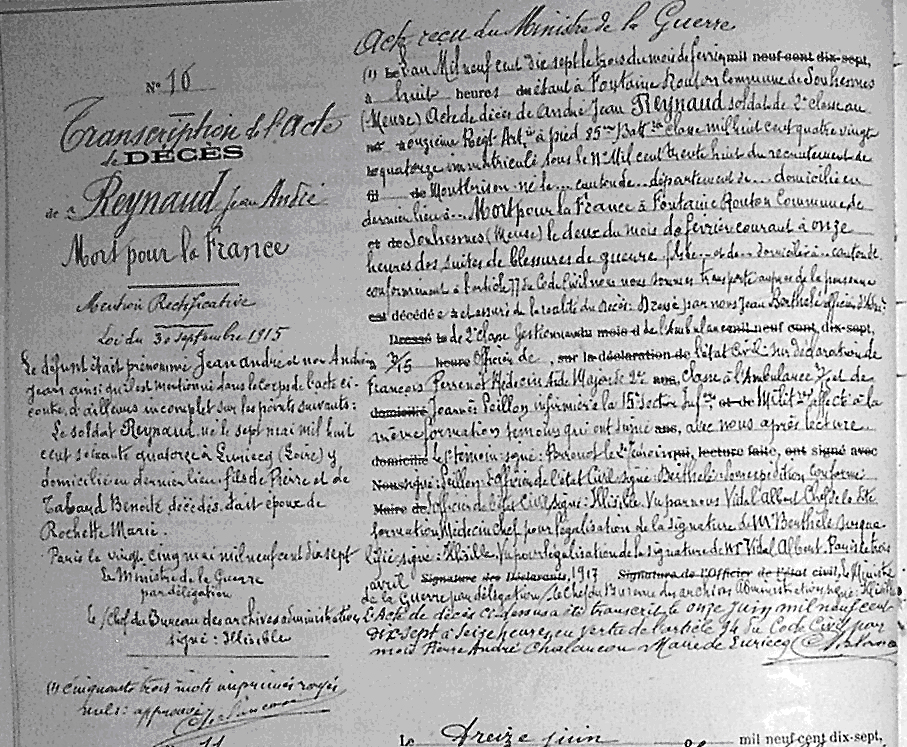 N° 16
Transcription de l'Acte
de DÉCÈS
de Reynaud Jean André
Mort pour la France
Mention Rectificative
Loi du 30 septembre 1915
Le défunt était prénommé Jean André et non André
Jean ainsi qu'il est mentionné dans le corps de l'acte ci-
contre, d'ailleurs incomplet sur les points suivants:
Le soldat Reynaud, né le sept mai mil huit
cent soixante quatorze à Luriecq (Loire) y
domicilié en dernier lieu, fils de Pierre et de
Tabaud Benoite décédés, était époux de
Rochette Marie.
Paris le vingt cinq mai mil neuf cent dix sept
Le Ministre de la Guerre
par délégation
Le Chef du Bureau des archives administratives
signé: Illisible
(1) Cinquante trois mots imprimés rayés
nuls: approuvé
Acte reçu du Ministre de la Guerre
(1) L'an Mil neuf cent dix sept le trois du mois de février mil neuf cent dix-sept,
à huit heures étant à Fontaine Routon Commune de Souhesmes
(Meuse) Acte de décès de André Jean Reynaud soldat de 2e classe au
onzième Régt Art. à pied 85me Batt. classe mil huit cent quatre vingt
quatorze immatriculé sous le N° Mil cent trente huit du recrutement de
de Montbrison né le... canton de... département de... domicilié en
dernier lieu à... Mort pour la France à Fontaine Routon Commune de
et de Souhesmes (Meuse) le deux du mois de février courant à onze
heures des suites de blessures de guerre, fils de... et de... domiciliés à... canton de
conformément à l'article 77 du Code Civil nous nous sommes transporté auprès de la personne
est décédée à assuré de la réalité du décès: Dressé par nous Jean Berthelé officier d'Adm.
Dressé le de 2e classe Gestionnaire du mois d de l'Ambulance mil neuf cent dix-sept,
à 3/15 heure Officier de , sur la déclaration de l'état Civil sur déclaration de
François Perrenot Médecin Aide Major de 2me ans, classe à l'Ambulance et de
domicilié Joannès Peillon infirmier à la 15e section Infre et de Milit. affecté à la
même formation témoins qui ont signé ans, avec nous après lecture
domicilié Le 1er témoin: signé: Perrenot le 2me témoin qui, lecture faite, ont signé avec
Nous signé: Peillon: L'officier de l'état Civil signé: Berthelé: Pour expédition conforme
Maire de L'officier de l'état Civil signé: Illisible. Vu par nous Vidal Albert Chef de la dite
formation Médecin Chef pour légalisation de la signature de Mr Berthelé susqua-
lifié signé: Illisible. Vu pour légalisation de la signature de Mr Vidal Albert. Paris le trois
avril Signature des Déclarants, 1917 Signature de l'Officier de l'état civil, Le Ministre
de la Guerre par délégation, Le Chef du Bureau des archives Administratives signé: Illisible
L'Acte de décès ci-dessus a été transcrit le onze juin mil neuf cent
dix sept à seize heures, en vertu de l'article 94 du Code Civil par
nous Pierre André Chalancon Maire de Luriecq
Le Treize juin mil neuf cent dix-sept,